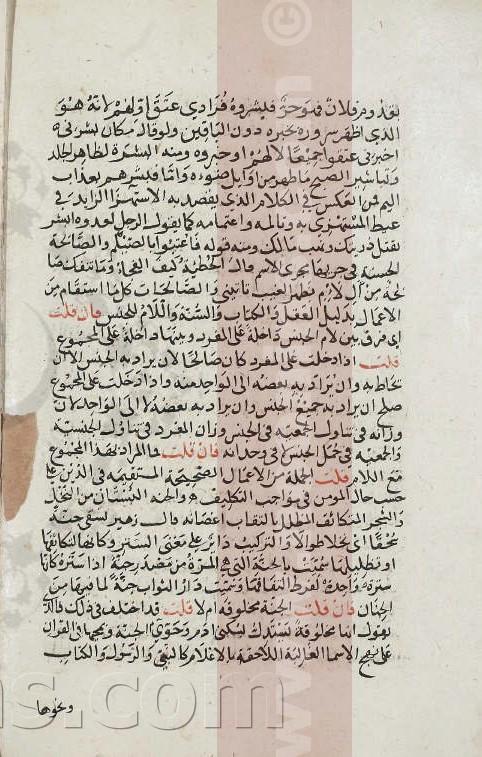 بقدوم فلان فهو حر فبشروه فرادى عتق اولهم لانه هو
الذي اظهر سروره بخبره دون الباقين ولو قال مكان بشرني
اخبرني عتقوا جميعا لانهم اخبروه ومنه البشرة لظاهر الجلد
وتباشير الصبح ما ظهر من اوايل ضوءه واما فبشرهم بعذاب
اليم فمن العكس في الكلام الذي يقصد به الاستهزا الزايد في
غيظ المستهزى به وتالمه واغتمامه كما يقول الرجل لعدوه ابشر
بقتل ذريتك ونهب مالك ومنه قوله فاعتبوا بالصيلم والصالحة
كالحسنة في جريها مجرى الاسم قال الحطيئة كيف الهجا وما تنفك صا
لحة من آل لأم بظهر الغيب تاتيني والصالحات كل ما استقام من
الاعمال بدليل العقل والكتاب والسنة واللام للجنس فان قلت
اي فرق بين لام الجنس داخلة على المفرد وبينها داخلة على المجموع
قلت اذا دخلت على المفرد كان صالحا لان يراد به الجنس الى ان
يحاط به وان يراد به بعضه الى الواحد منه واذا دخلت على المجموع
صلح ان يراد به جميع الجنس وان يراد به بعضه لا الى الواحد لان
وزانه في تناول الجمعية في الجنس وزان المفرد في تناول الجنسية
والجمعية في جمل الجنس لا في وحدانه فان قلت فما المراد بهذا المجموع
مع اللام قلت الجملة من الاعمال الصحيحة المستقيمة في الدين على
حسب حال المومن في مواجب التكليف والجنة البستان من النخل
والشجر المتكاثف المظلل بالتفاف اغصانه قال زهير تسقي جنة
سحقا اي نخلا طوالا والتركيب داير على معنى الستر وكانها لتكاثفها
وتظليلها سميت بالجنة التي هي المرة من مصدر جنه اذا ستره كانها
سترة واحدة لفرط التفافها وسميت دار الثواب جنة لما فيها من
الجنان فان قلت الجنة مخلوقة ام لا قلت قد اختلف في ذلك فالذي
يقول انها مخلوقة يستدل بسكنى ادم وحوى الجنة وبمجيها في القران
على نهج الاسما الغالبة اللاحقة بالاعلام كالنبي والرسول والكتاب
ونحوها